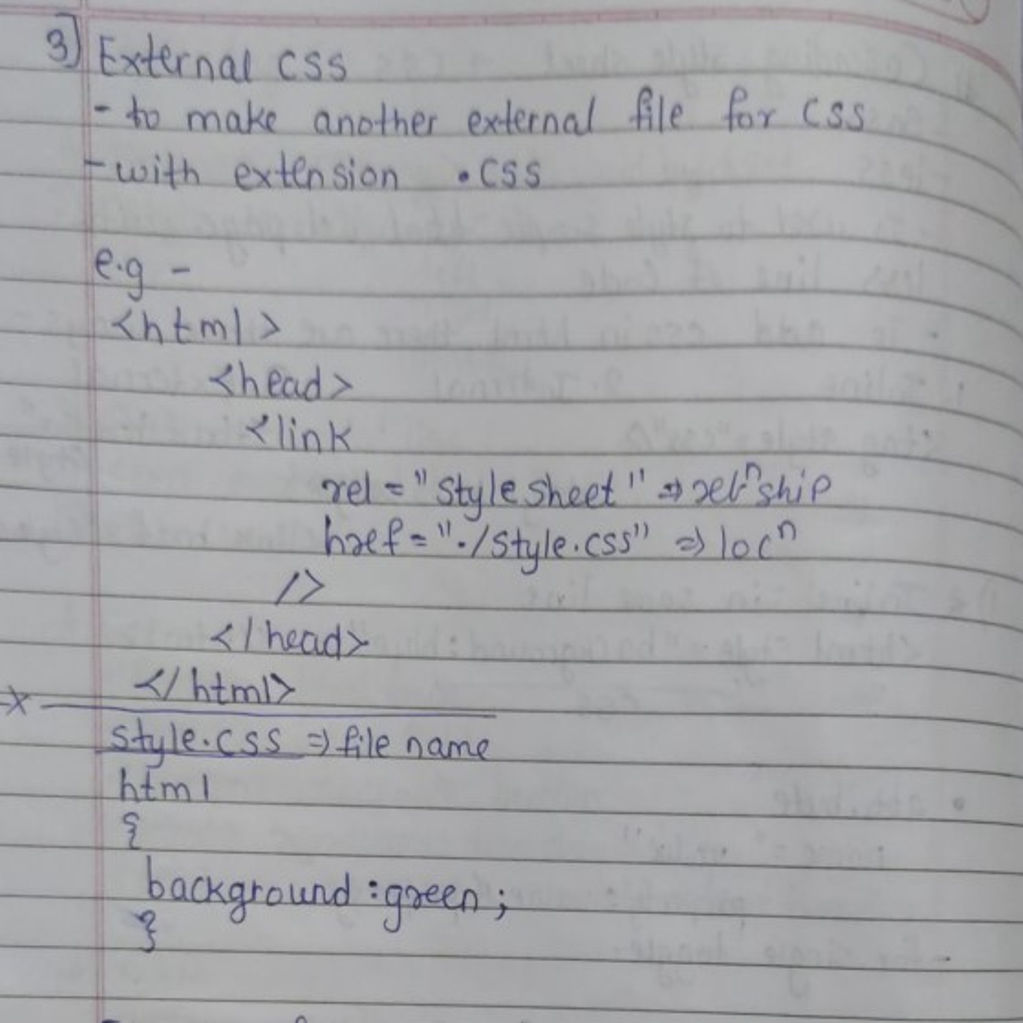 3] External CSS
- to make another external file for CSS
- with extension .CSS
e.g -
<html>
<head>
<link
rel = "Style sheet" => relⁿship
href = "./style.css" => locⁿ
/>
</head>
</html>
style.css => file name
html
{
background : green ;
}